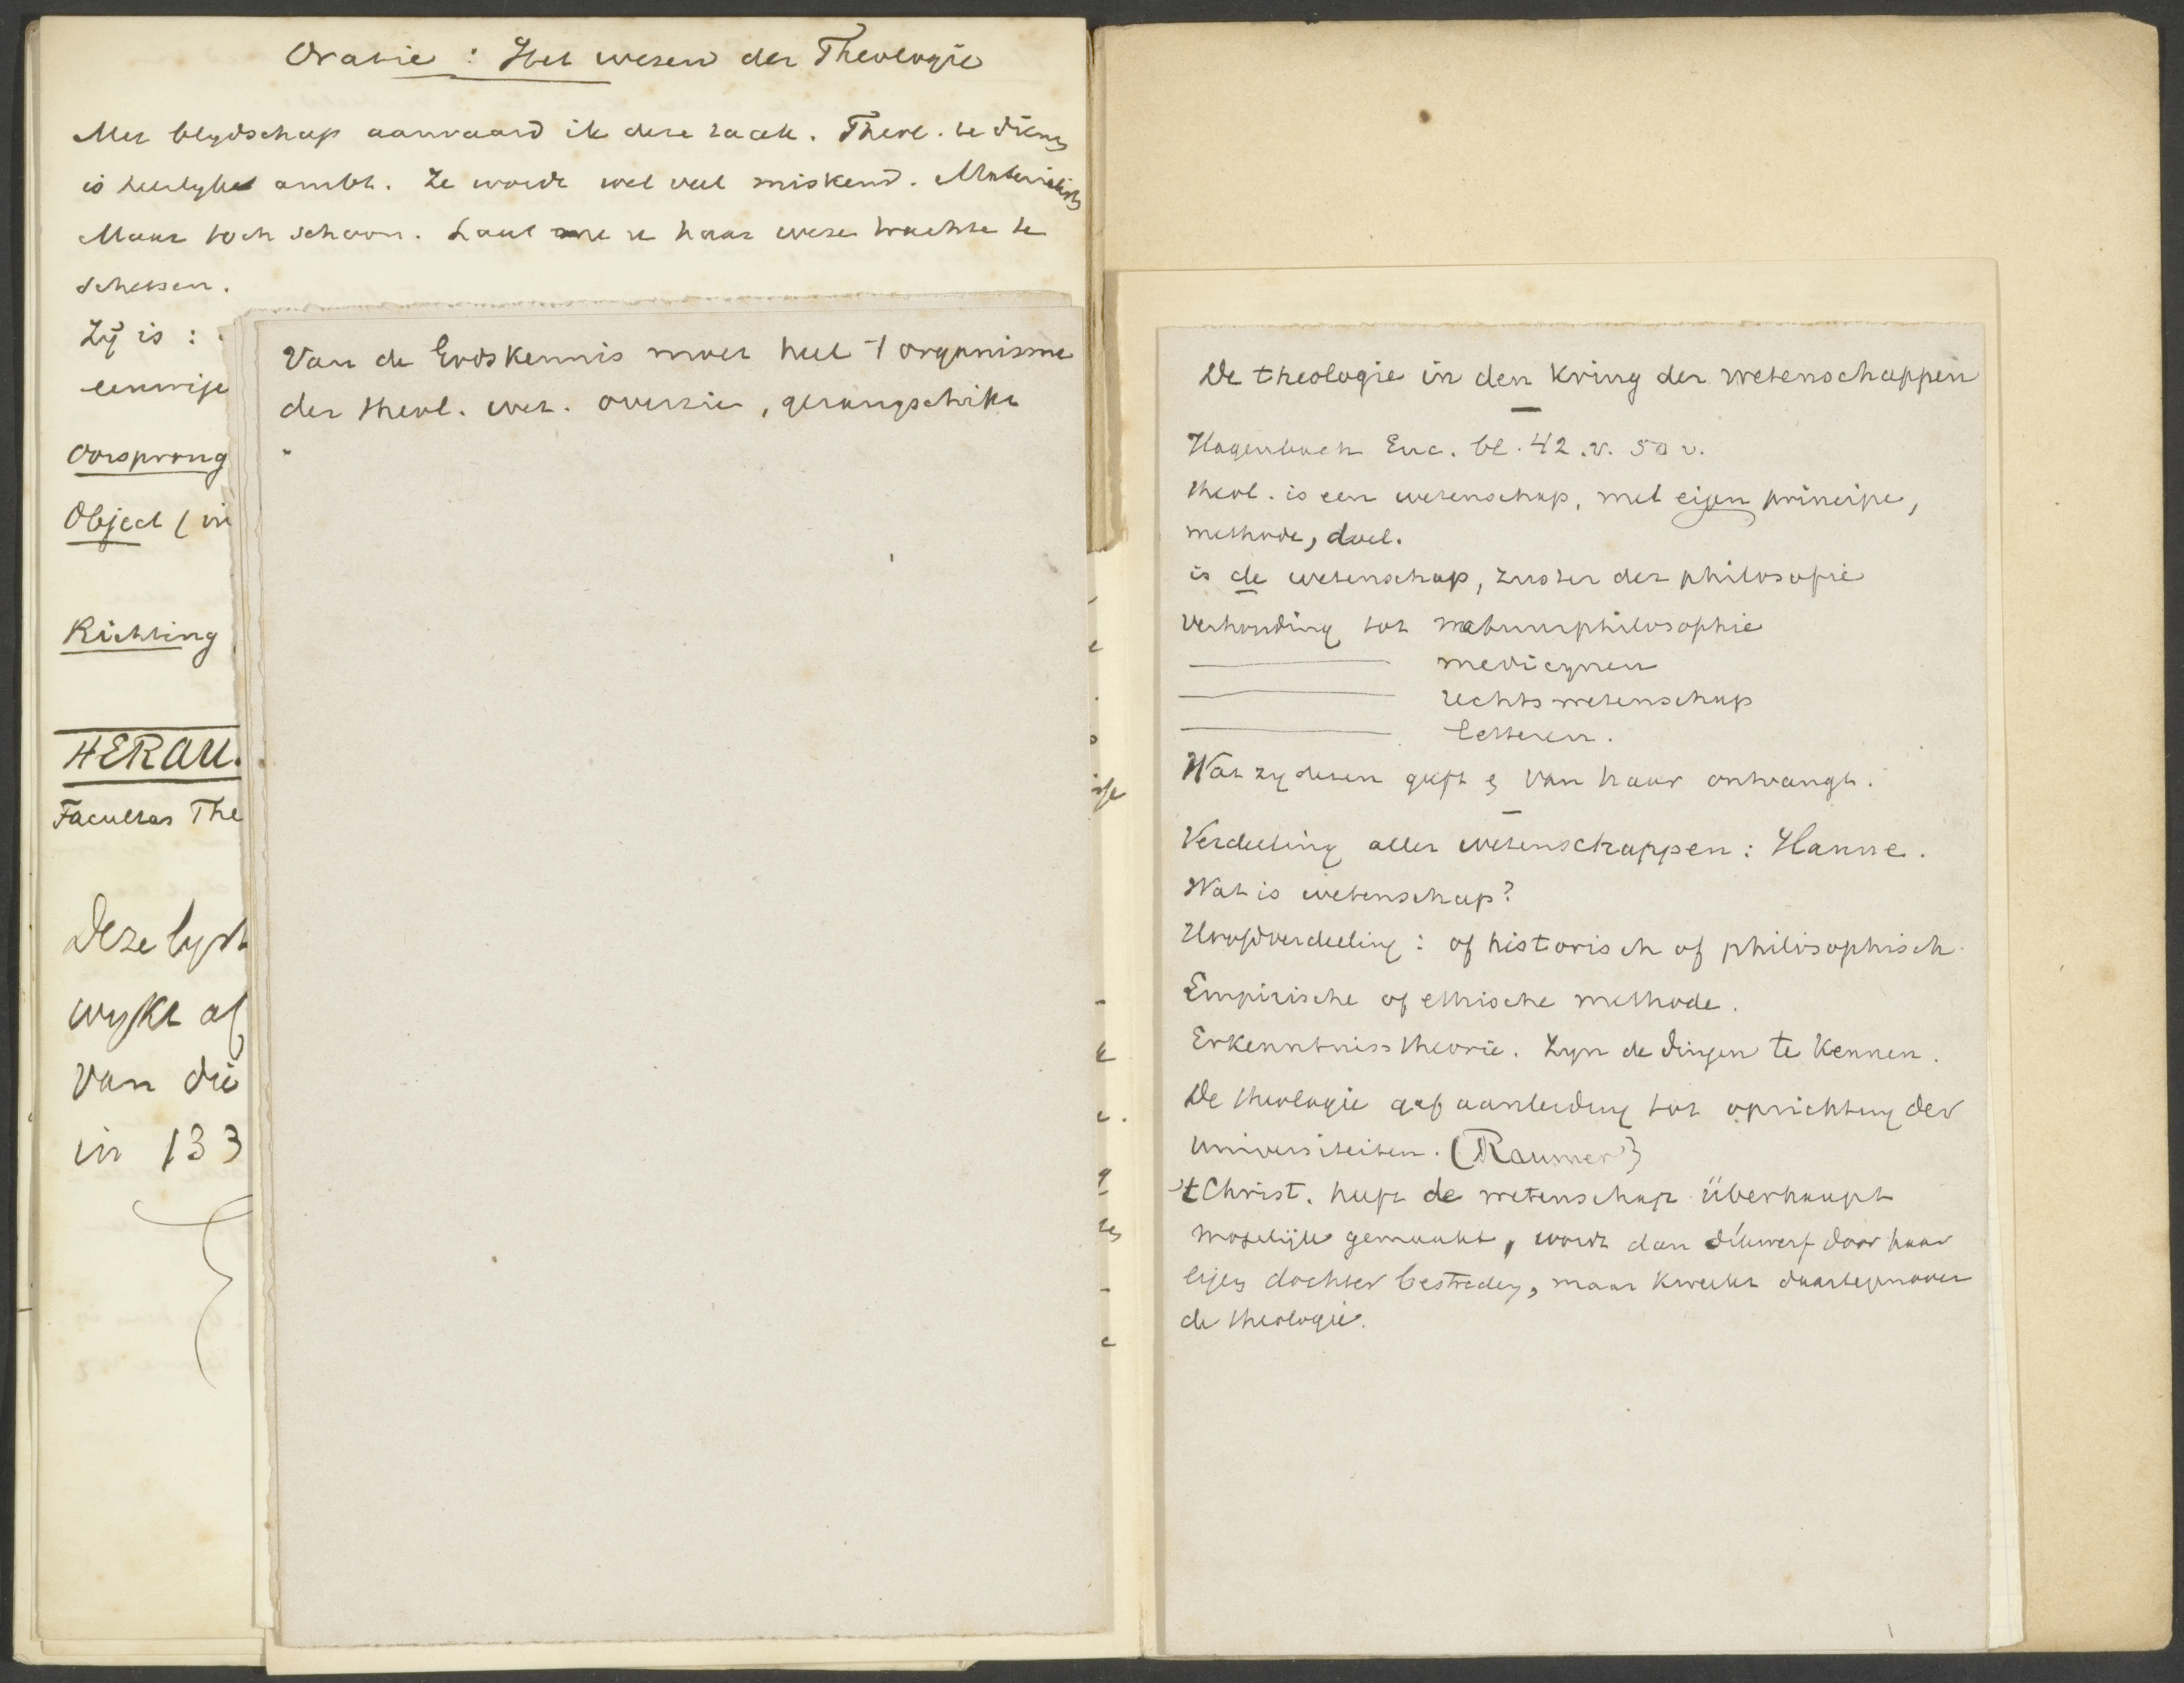 Oratie : Het wesen der Theologie
Met blydschap aanvaard ik deze taak. Theol. te dienen
is heerlyk ambt. Ze wordt wel veel miskend. Materialisten
Maar toch schoon. Laat me u haar wezen trachten te
schetsen.
Zÿ is :
eenwige
Oorsprong
Object (in
Richting
HERAU.
Facultas The
Deze lyst
wykt af
van die
in 133
Van de Godskennis moet heel 't organisme
der theol. wet. overzien, gerangschikt
De theologie in den kring der wetenschappen
Hagenbach Enc. bl. 42.v. 50 v.
theol. is een wetenschap, met eigen principe,
methode, doel.
is de wetenschap, zuster der philosofie
verhouding tot natuurphilosophie
medicynen
rechtswetenschap
letteren.
Wat zy dezen geeft & van haar ontvangt.
Verdeeling aller wetenschappen : Hanne.
Wat is wetenschap?
Hoofdverdeeling : of historisch of philosophisch
Empirische of ethische methode.
Erkenntnisstheorie. Zyn de dingen te kennen.
De theologie gaf aanleiding tot oprichting der
universiteiten. (Raumer)
't Christ. heeft de wetenschap überhaupt
mogelijk gemaakt, wordt dan dikwerf door haar
eigen dochter bestreden, maar kweekt daartegenover
de theologie.